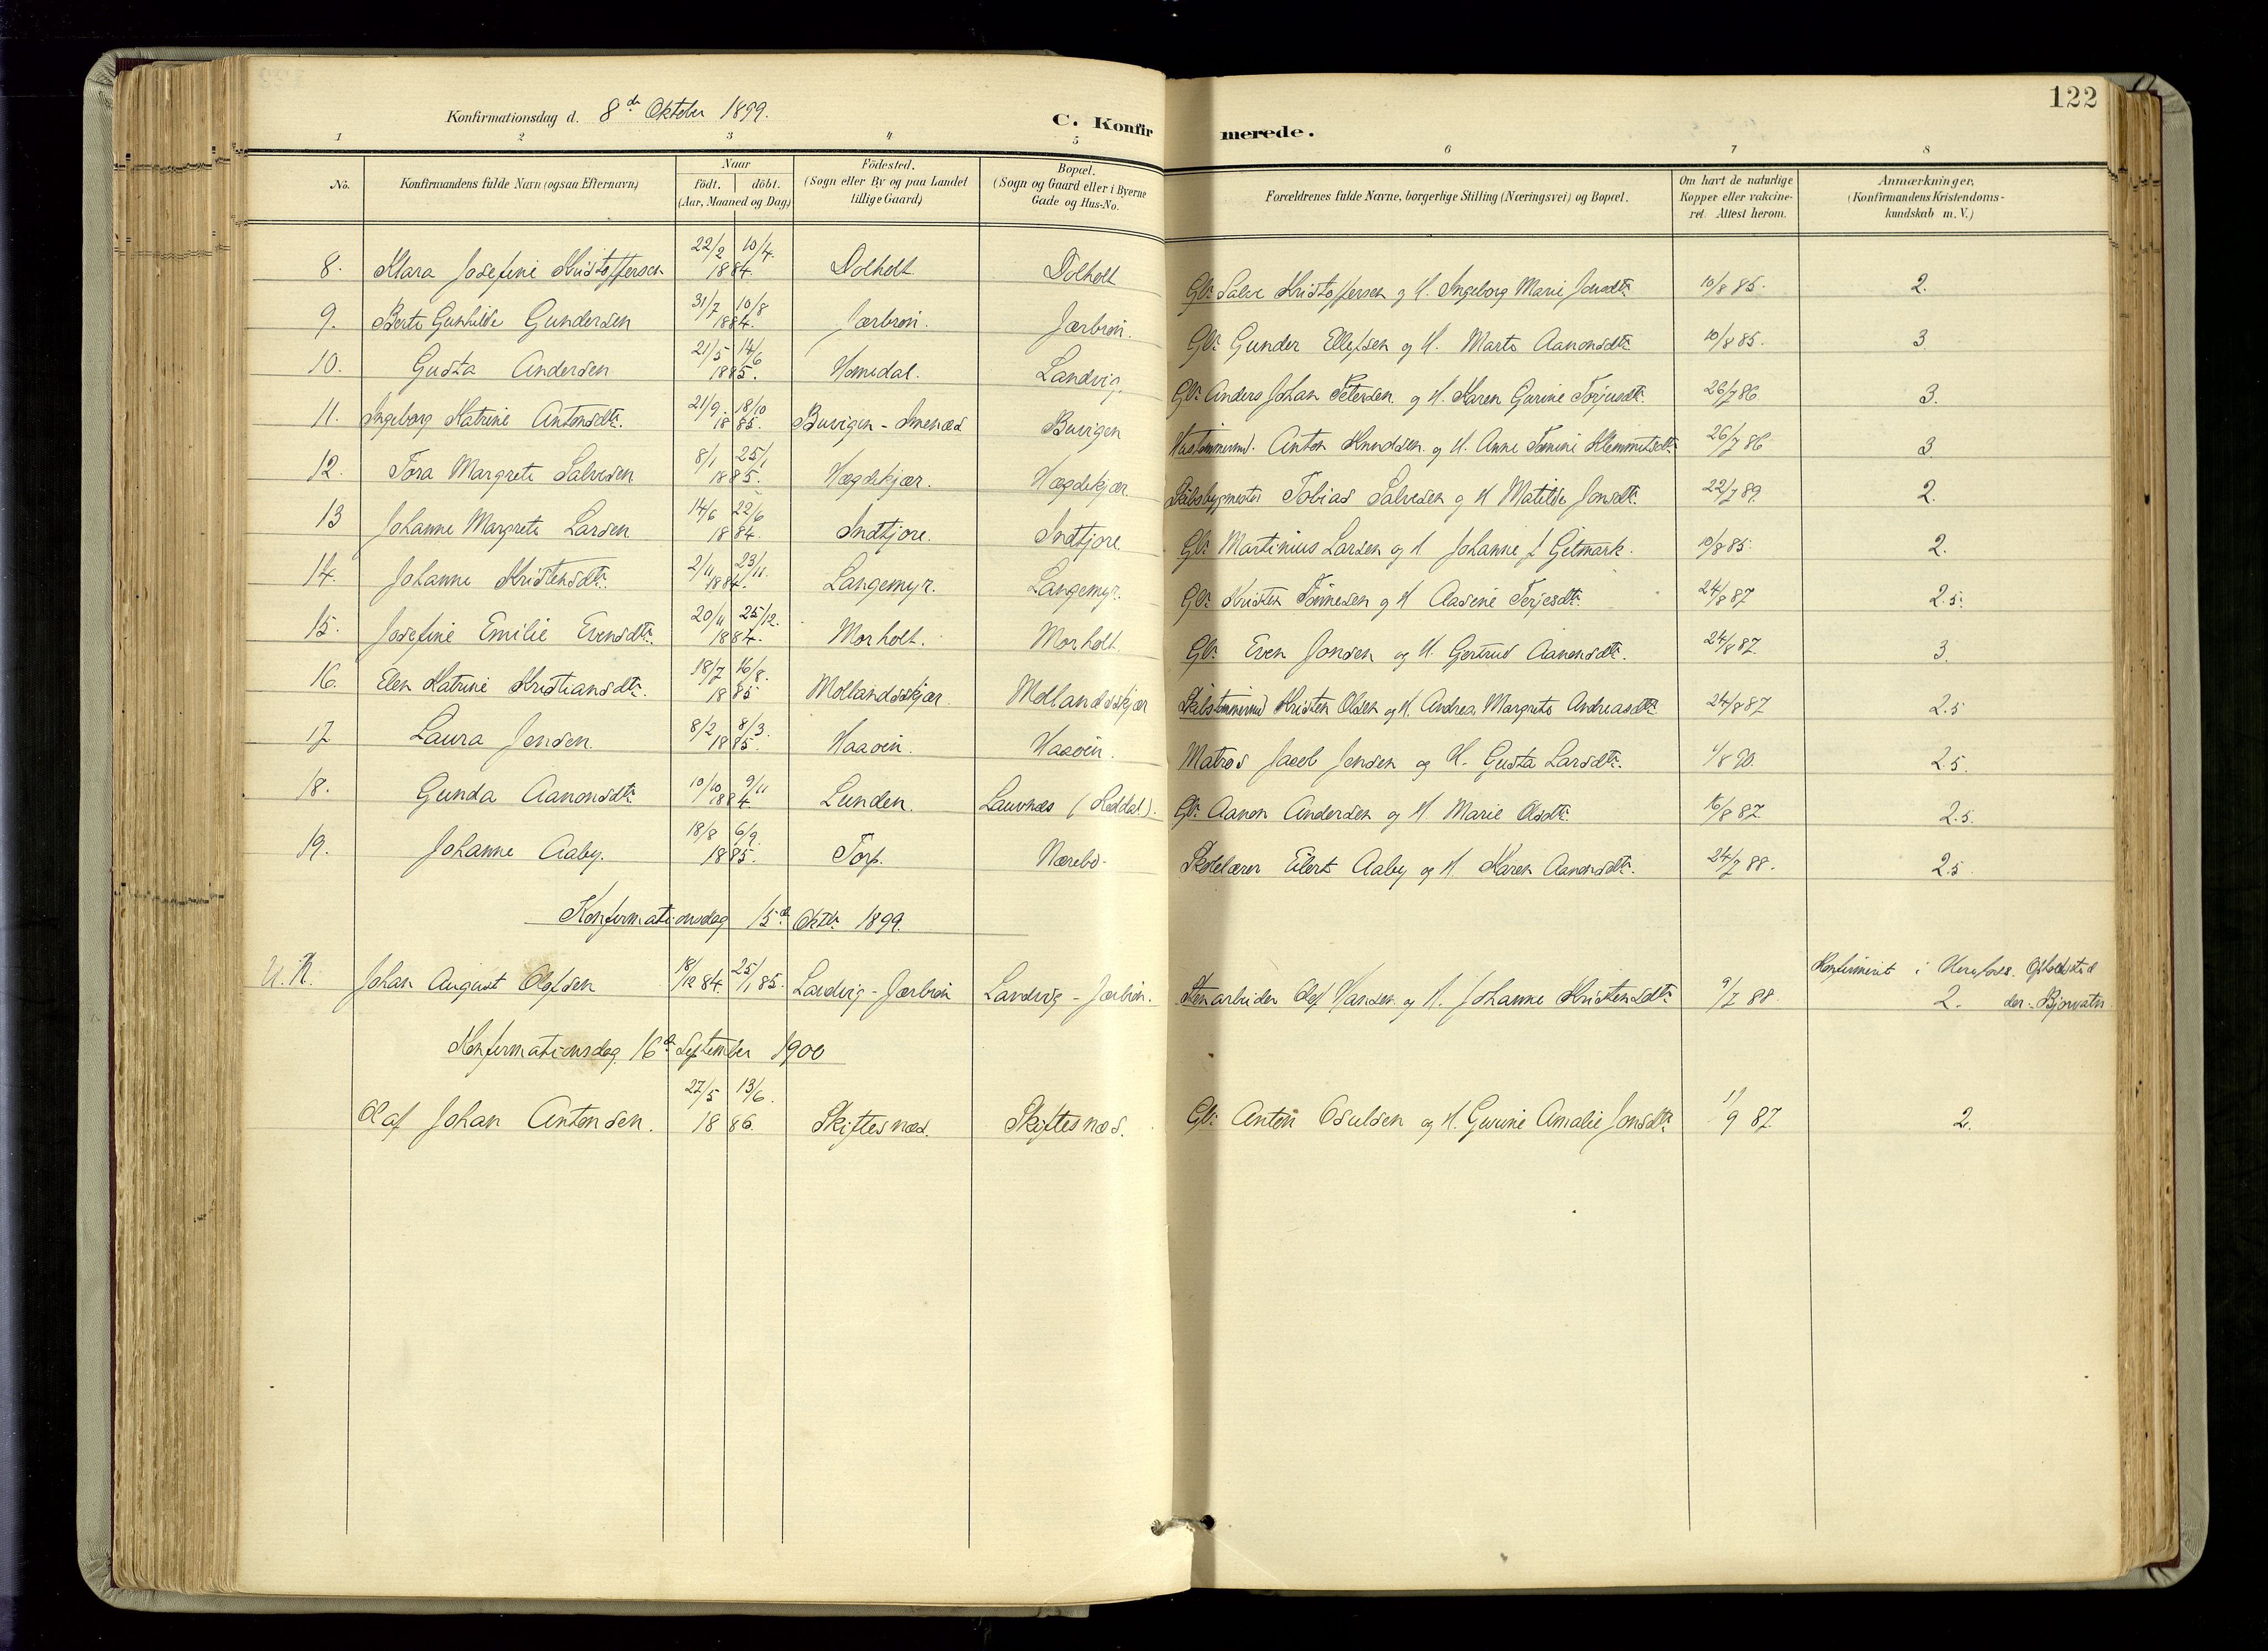 122
Konfirmationsdag d. 8de Oktober 1899.
C. Konfirmerede.
1 2 3 4 5 6 7 8
No. Konfirmandens fulde Navn (ogsaa Efternavn) Naar födt. döbt. (Aar, Maaned og Dag) Födested. (Sogn eller By og paa Landet tillige Gaard) Bopæl. (Sogn og Gaard eller i Byerne Gade og Hus-No. Forældrenes fulde Navne, borgerlige Stilling (Næringsvei) og Bopæl. Om havt de naturlige Kopper eller vakcineret. Attest herom. Anmærkninger, (Konfirmandens Kristendomskundskab m. V.)
8. Klara Josefine Kristoffersen 22/2 10/4 1884. Dolholt Dolholt Gbr. Salve Kristoffersen og H. Ingeborg Marie Jonsdtr. 10/8 85. 2.
9. Berte Gunhilde Gundersen 31/7 10/8 1884. Jærbron. Jærbron. Gbr. Gunder Ellefsen og H. Marte Aanonsdtr. 10/8 85. 3
10. Gusta Andersen 21/5 14/6 1885. Homedal. Landvig. Gbr. Anders Johan Petersen og H. Karen Gurine Torjusdtr. 26/7 86 3.
11. Ingeborg Katrine Antonsdtr. 21/9. 18/10 1885. Buvigen - Imenæs Buvigen Hustømmermd. Anton Knudsen og H. Anne Tomine Klemmetsdtr. 26/7 86 3
12. Tora Margrete Salvesen 8/1 25/1 1885. Hægdekjær. Hægdekjær. Skibsbygmester Tobias Salvesen og H Matilde Jonsdtr. 22/7 89. 2.
13 Johanne Margrete Larsen 14/6 22/6 1884. Indtjore. Indtjore Gbr. Martinius Larsen og H Johanne f Getmark. 10/8 85. 2.
14. Johanne Kristensdtr. 2/11 23/11. 1884. Langemyr. Langemyr. Gbr. Kristen Tønnesen og H Aasine Terjesdtr. 24/8 87 2.5.
15. Josefine Emilie Evensdtr. 20/11 25/12. 1884. Morholt. Morholt. Gbr. Even Jonsen og H. Gertrud Aanonsdtr. 24/8 87. 3.
16. Elen Katrine Kristiansdtr. 18/7 16/8. 1885 Mollandsskjær Mollandsskjær Skibstømmermd Kristen Olsen og H. Andrea Margrete Andreasdtr. 24/8 87 2.5
17 Laura Jensen. 8/2 8/3. 1885. Haaøen. Haaøen. Matros Jacob Jensen og H. Gusta Larsdtr. 1/8 90. 2.5.
18. Gunda Aanonsdtr. 10/10 9/11 1884 Lunden. Laurnæs (Heddal). Gbr. Aanon Andersen og H Marie Olsdtr. 16/8 87. 2.5.
19. Johanne Aaby. 18/8 6/9. 1885. Torp. Nærebø. Skolelærer Eilert Aaby og H. Karen Aanonsdtr. 24/7 88. 2.5
Konfirmationsdag 15de Oktbr. 1899.
U. K. Johan August Olefsen 18/12 84. 25/1 85. Landvig - Jærbron Landvig - Jærbron. Stenarbeider Olef Hansen og H. Johanne Kristensdtr. 9/7 88. Konfirmeret i Herefoss. Opholdsted
2. der: Bjorvatn
Konfirmationsdag 16de September 1900
Olaf Johan Antonsen. 27/5 13/6. 1886. Skiftesnæs. Skiftesnæs. Gbr. Anton Osulsen og H. Gurine Amalie Jonsdtr. 1/9 87. 2.